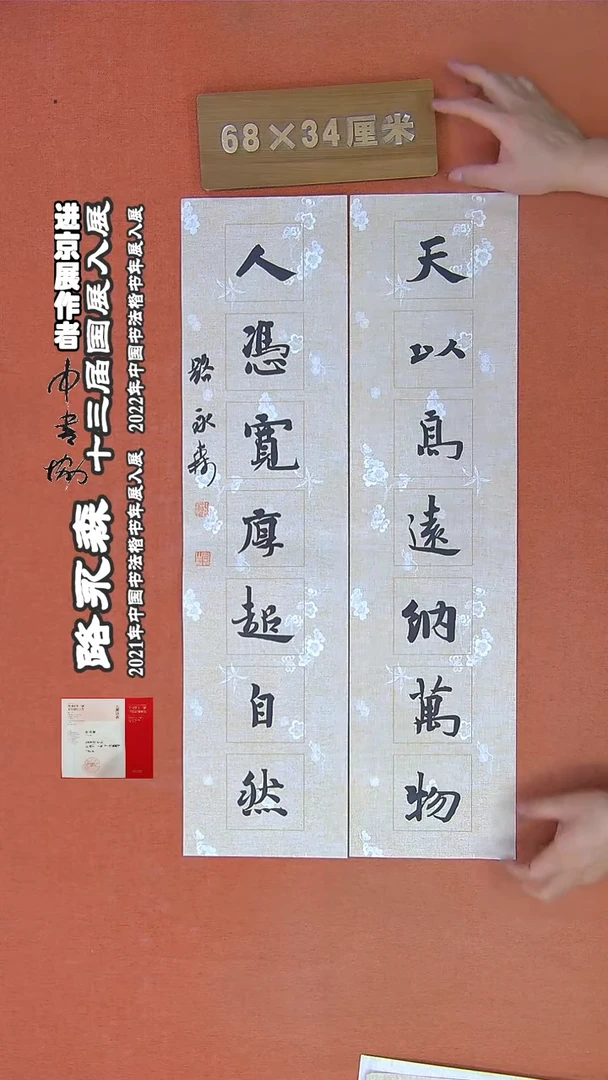 68×34厘米
天以高遠納萬物
人憑寬厚超自然
路永森
进京展作者
中书协
路永森
十三届国展入展
2021年中国书法楷书年展入展 2022年中国书法楷书年展入展